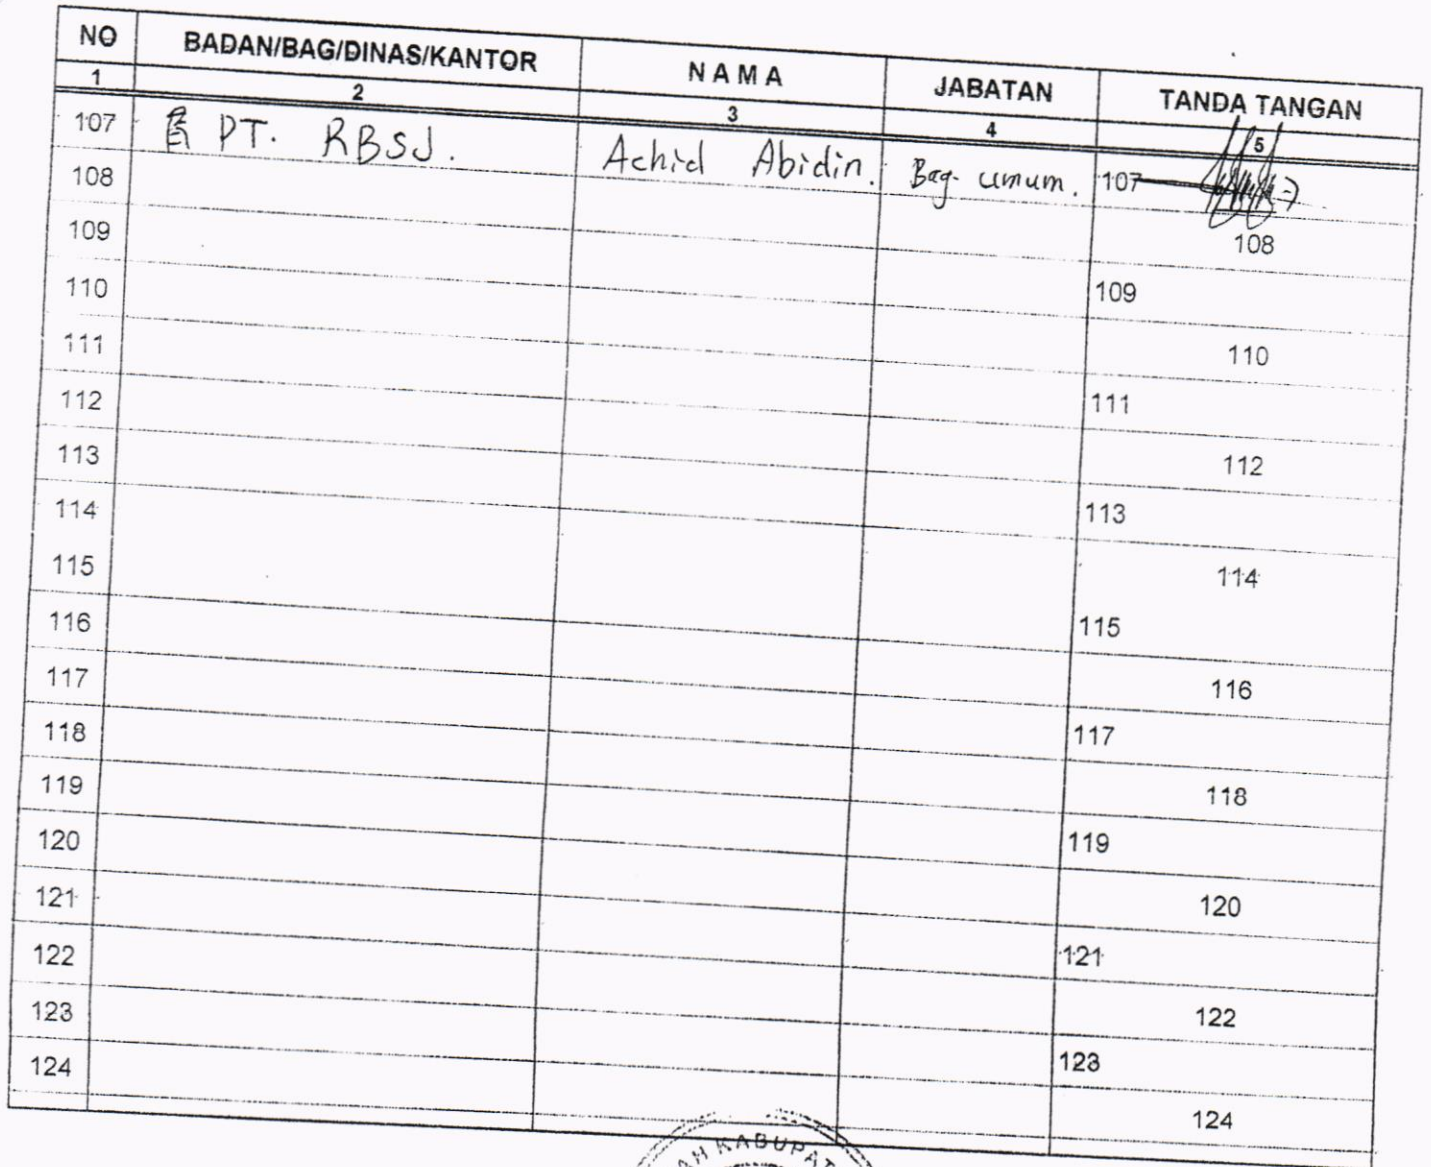 NO BADAN/BAG/DINAS/KANTOR N A M A JABATAN TANDA TANGAN
1 2 3 4 5
107 PT. RBSJ. Achid Abidin. Bag. umum. 107
108 108
109 109
110 110
111 111
112 112
113 113
114 114
115 115
116 116
117 117
118 118
119 119
120 120
121 121
122 122
123 123
124 124
KABUPAT